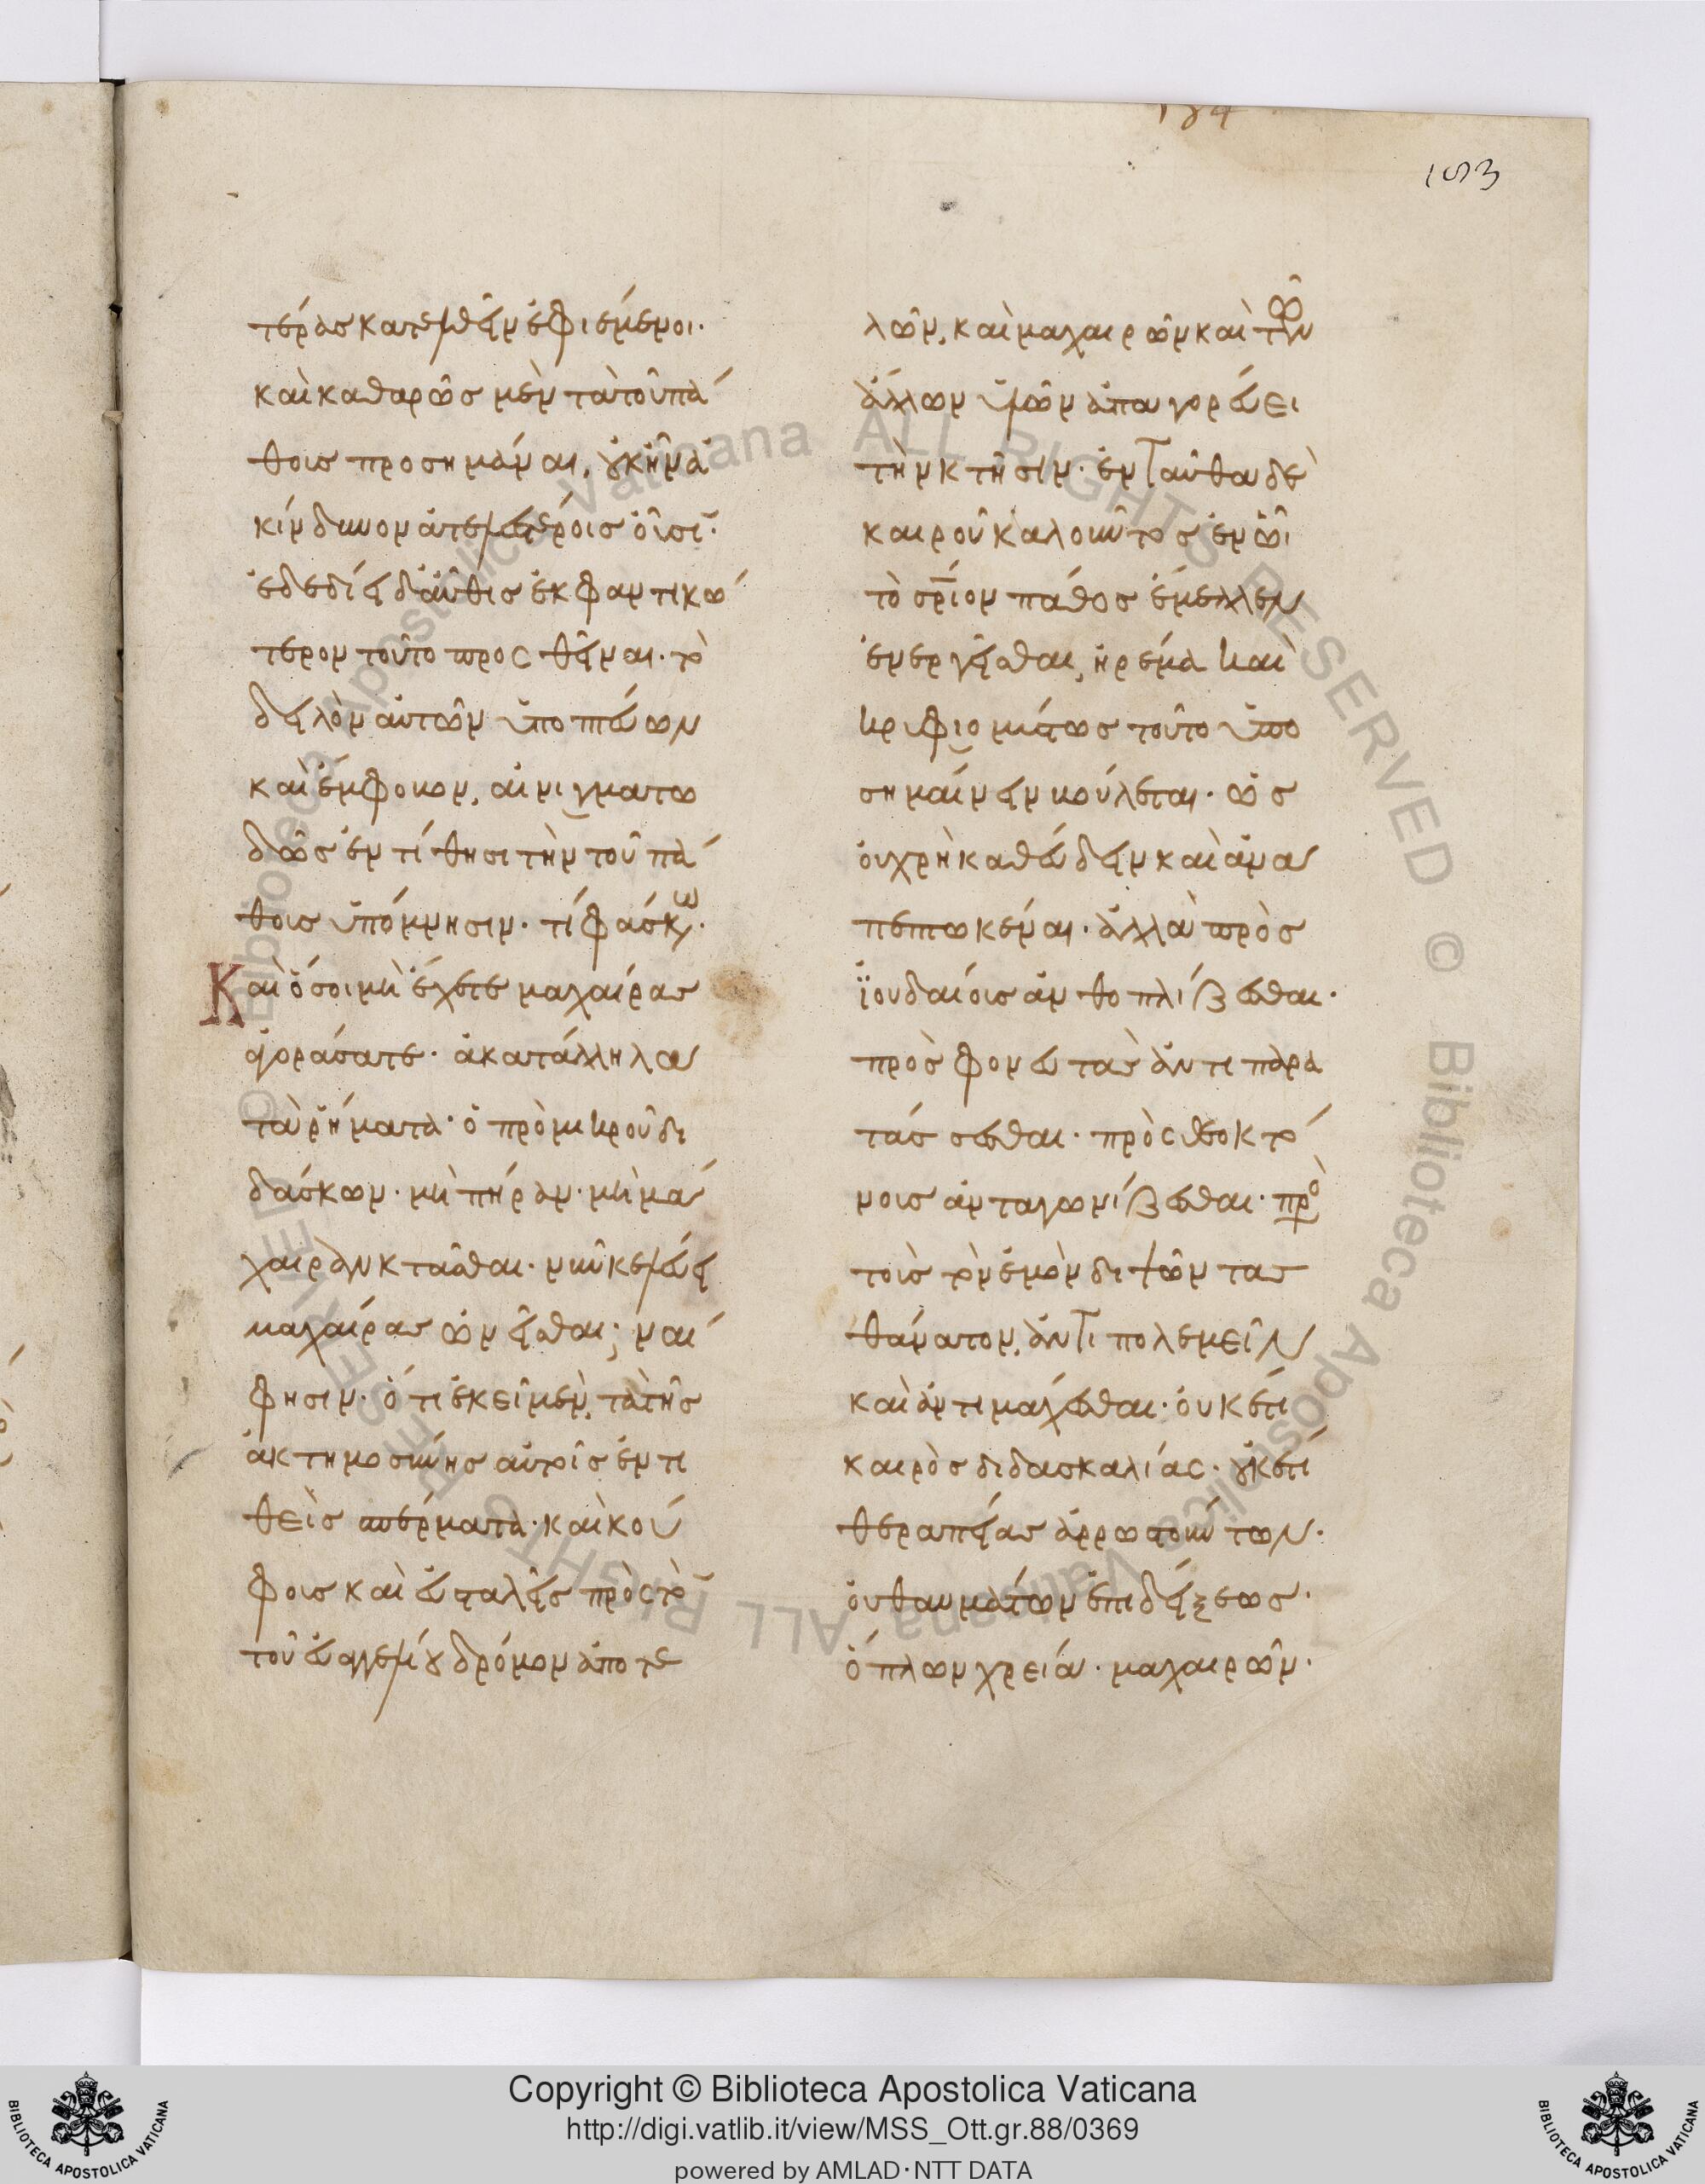 184
183
τέρας κατελθεῖν ἐφιέμενοι·
καὶ καθαρῶς μὲν τὰ τοῦ πά
θους προσημάναι, οὐκ ἦν ἀ
κίνδυνον ἀτελεστέροις οὖσι·
ἐδεδίει δ' αὖθις ἐκφαντικώ
τερον τοῦτο προσθεῖναι· τὸ
δειλὸν αὐτῶν ὑποπτεύων
καὶ ἔμφοβον, αἰνιγματω
δῶς ἐντίθησι τὴν τοῦ πά
θους ὑπόμνησιν· τί φάσκων·
Καὶ ὅσοι μὴ ἔχετε μαχαίρας
ἀγοράσατε· ἀκατάλληλα
τὰ ῥήματα· ὁ πρὸ μικροῦ δι
δάσκων· μὴ πήραν· μὴ μά
χαιραν κτᾶσθαι· νῦν κελεύει
μαχαίρας ὠνεῖσθαι; ναί
φησιν· ὅτι ἐκεῖ μὲν, τὰ τῆς
ἀκτημοσύνης αὐτοῖς ἐντι
θεὶς σπέρματα· καὶ κού
φους καὶ εὐσταλεῖς πρὸς τὸν
τοῦ εὐαγγελίου δρόμον ἀποτε
λῶν, καὶ μαχαιρῶν καὶ τῶν
ἄλλων ὑμῶν ἀπαγορεύει
τὴν κτῆσιν· ἐνταῦθα δὲ
καιροῦ καλοῦντος ἐν ὧι
τὸ σριον πάθος ἔμελλεν
ἐνεργεῖσθαι, ἠρέμα καὶ
κρυφιομύστως τοῦτο ὑπο
σημαίνειν βούλεται· ὡς
οὐ χρὴ καθεύδειν καὶ ἀνα
πεπτωκέναι· ἀλλὰ πρὸς
ἰουδαίους ἀνθοπλίζεσθαι·
πρὸς φονευτὰς ἀντιπαρα
τάσσεσθαι· πρὸς θεοκτό
νους ἀνταγωνίζεσθαι· πρὸ
τοὺς τὸν ἐμὸν διψῶντας
θάνατον, ἀντιπολεμεῖν
καὶ ἀντιμάχεσθαι· οὐκ ἔτι
καιρὸς διδασκαλίας· οὐκ ἔτι
θεραπείας ἀρρωστούντων·
οὐ θαυμάτων ἐπιδείξεως·
ὅπλων χρεία· μαχαιρῶν·
Copyright © Biblioteca Apostolica Vaticana
http://digi.vatlib.it/view/MSS_Ott.gr.88/0369
powered by AMLAD·NTT DATA